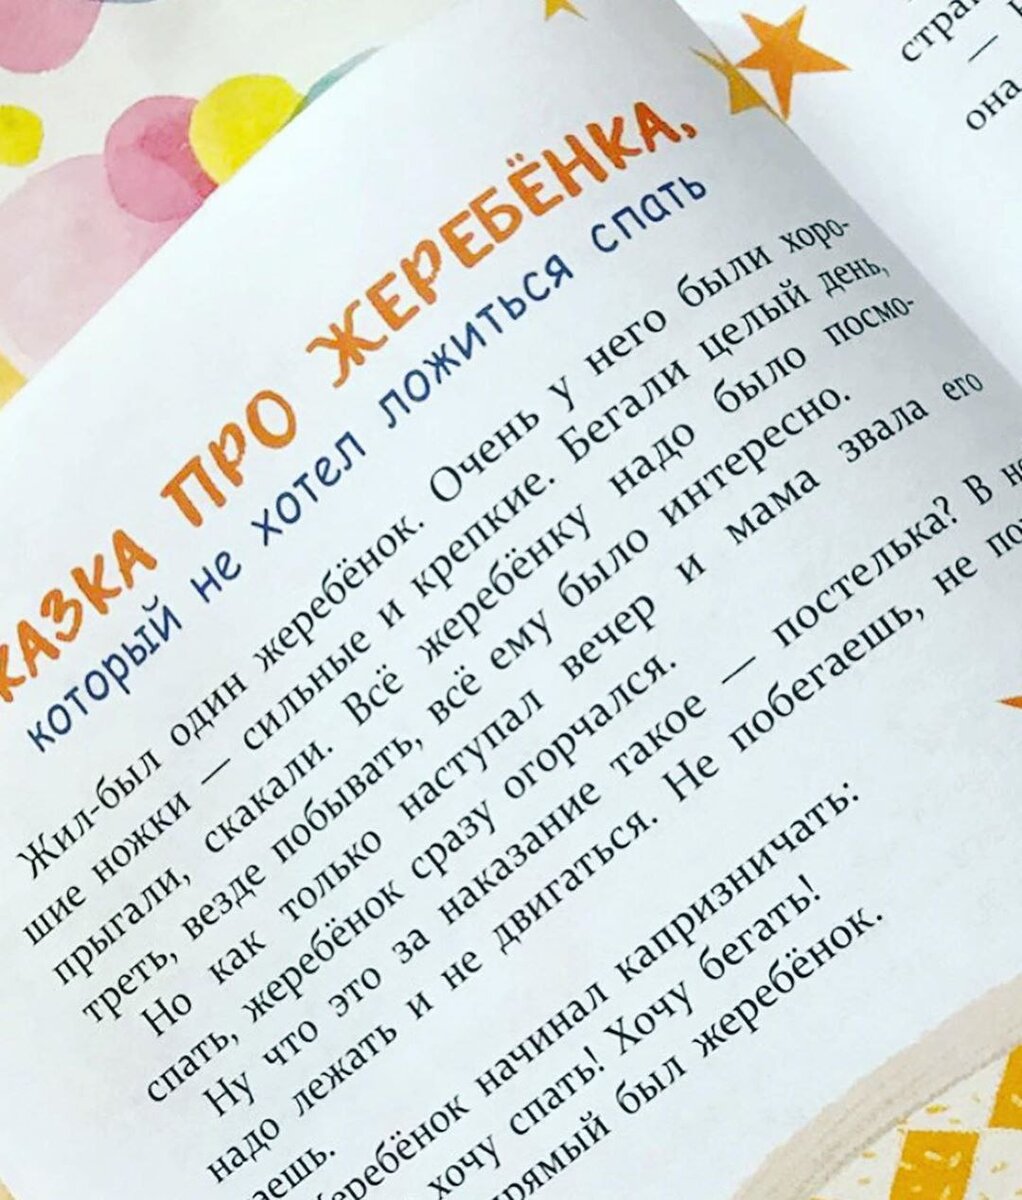 КАЗКА ПРО ЖЕРЕБЁНКА,
который не хотел ложиться спать
Жил-был один жеребёнок. Очень у него были хоро-
шие ножки — сильные и крепкие. Бегали целый день,
прыгали, скакали. Всё жеребёнку надо было посмо-
треть, везде побывать, всё ему было интересно.
Но как только наступал вечер и мама звала его
спать, жеребёнок сразу огорчался.
Ну что это за наказание такое — постелька? В
надо лежать и не двигаться. Не побегаешь, не
аешь.
еребёнок начинал капризничать:
хочу спать! Хочу бегать!
рямый был жеребёнок.
стра
—
она